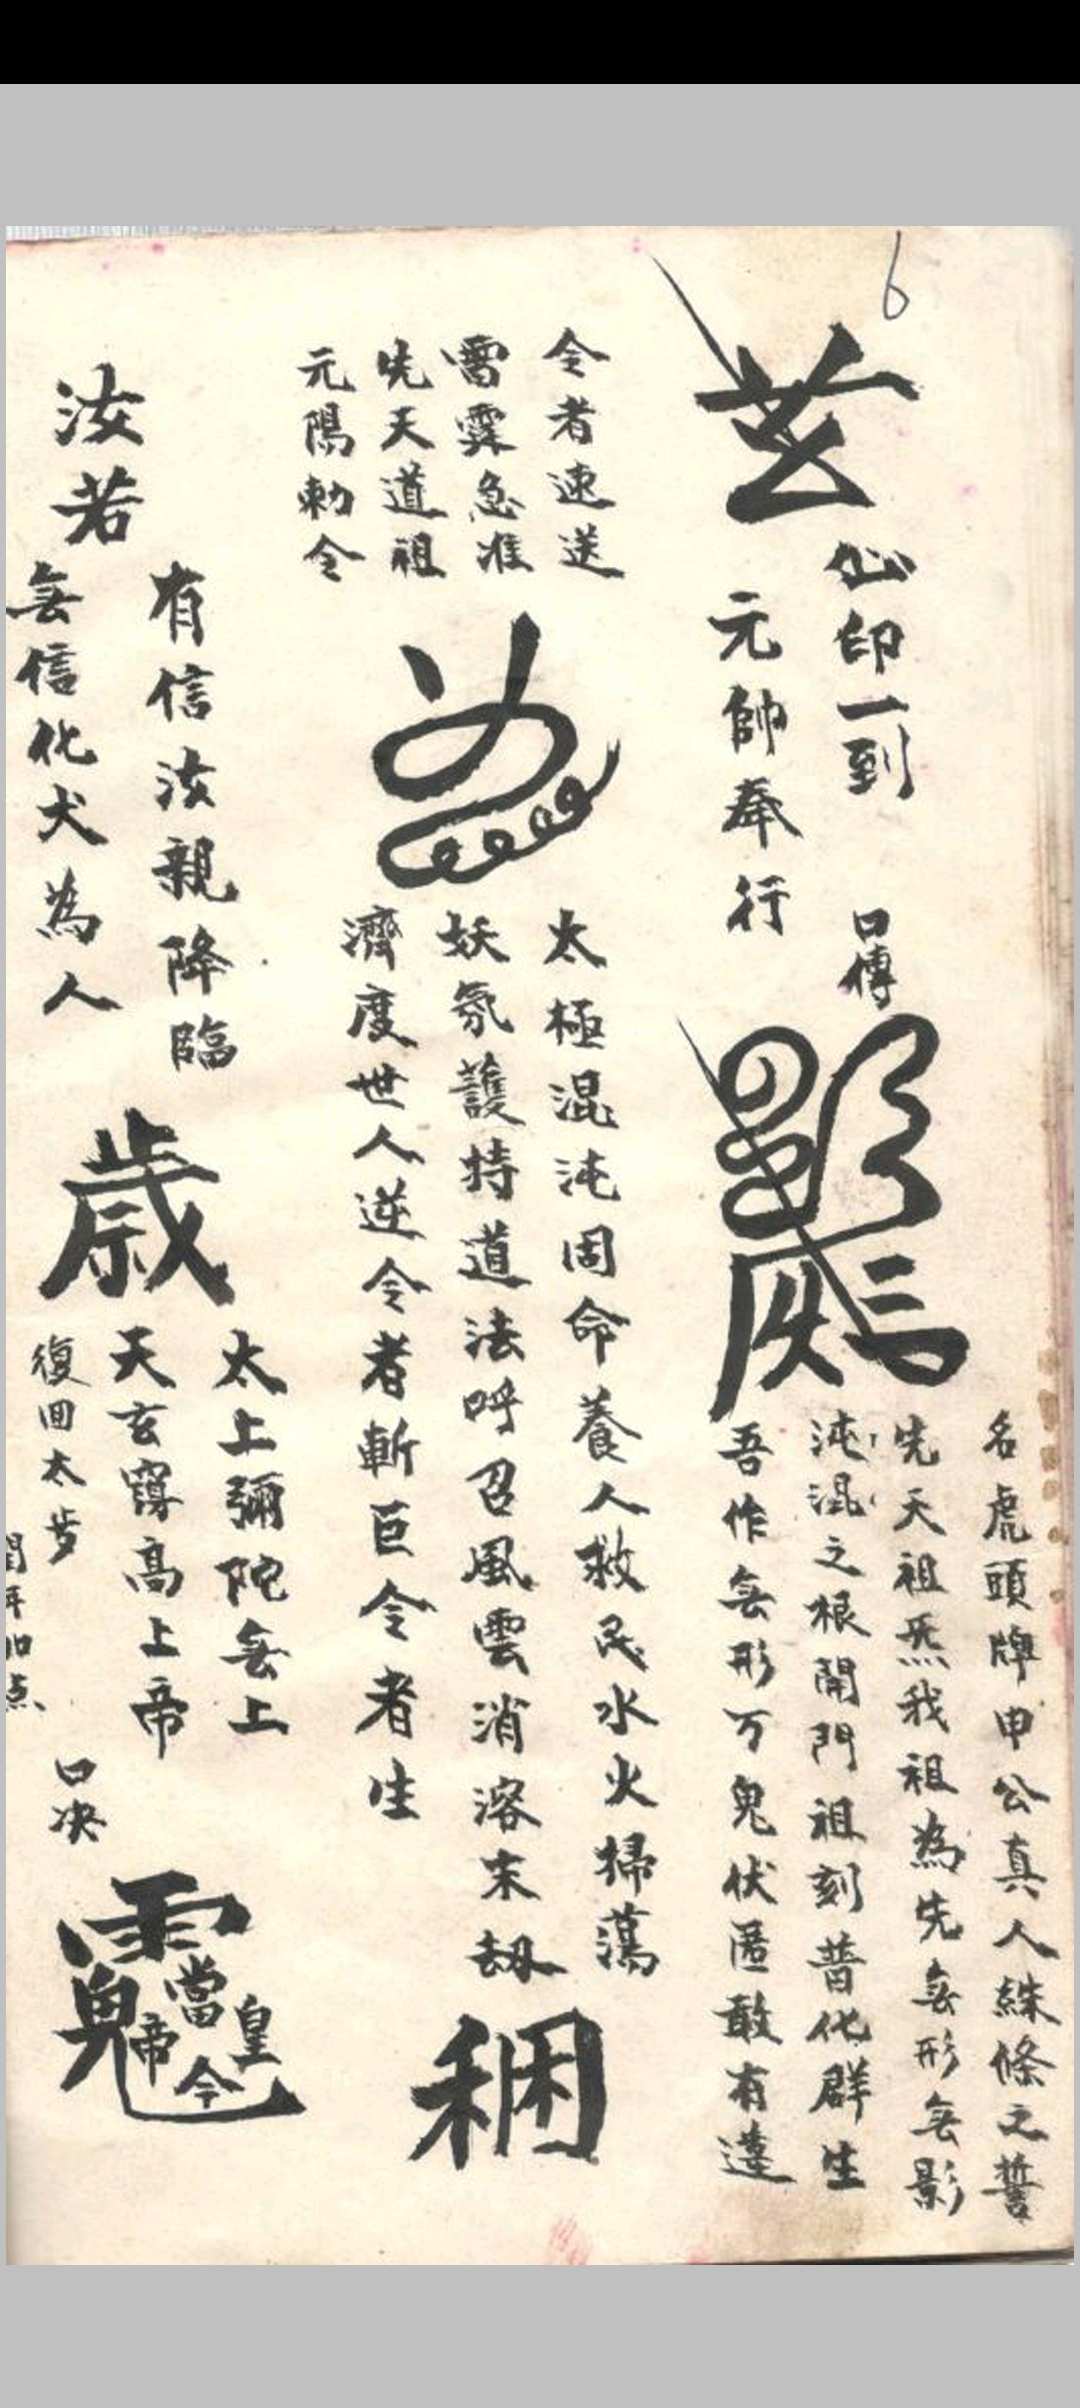 6
仙印一到
元帥奉行
口傳
名虎頭牌申公真人絲絛之誓
先天祖炁我祖為先無形無影
沌混之根開門祖刻普化群生
吾作無形万鬼伏匿敢有違
令者速送
雷霆急准
先天道祖
元陽勅令
太極混沌固命養人救民水火掃蕩
妖氛護持道法呼召風雲消溶末劫
濟度世人逆令者斬巨令者生
汝若
有信汝親降臨
無信化犬為人
歲
太上彌陀無上
天玄穹高上帝
復回太歩
閏年加点
口决